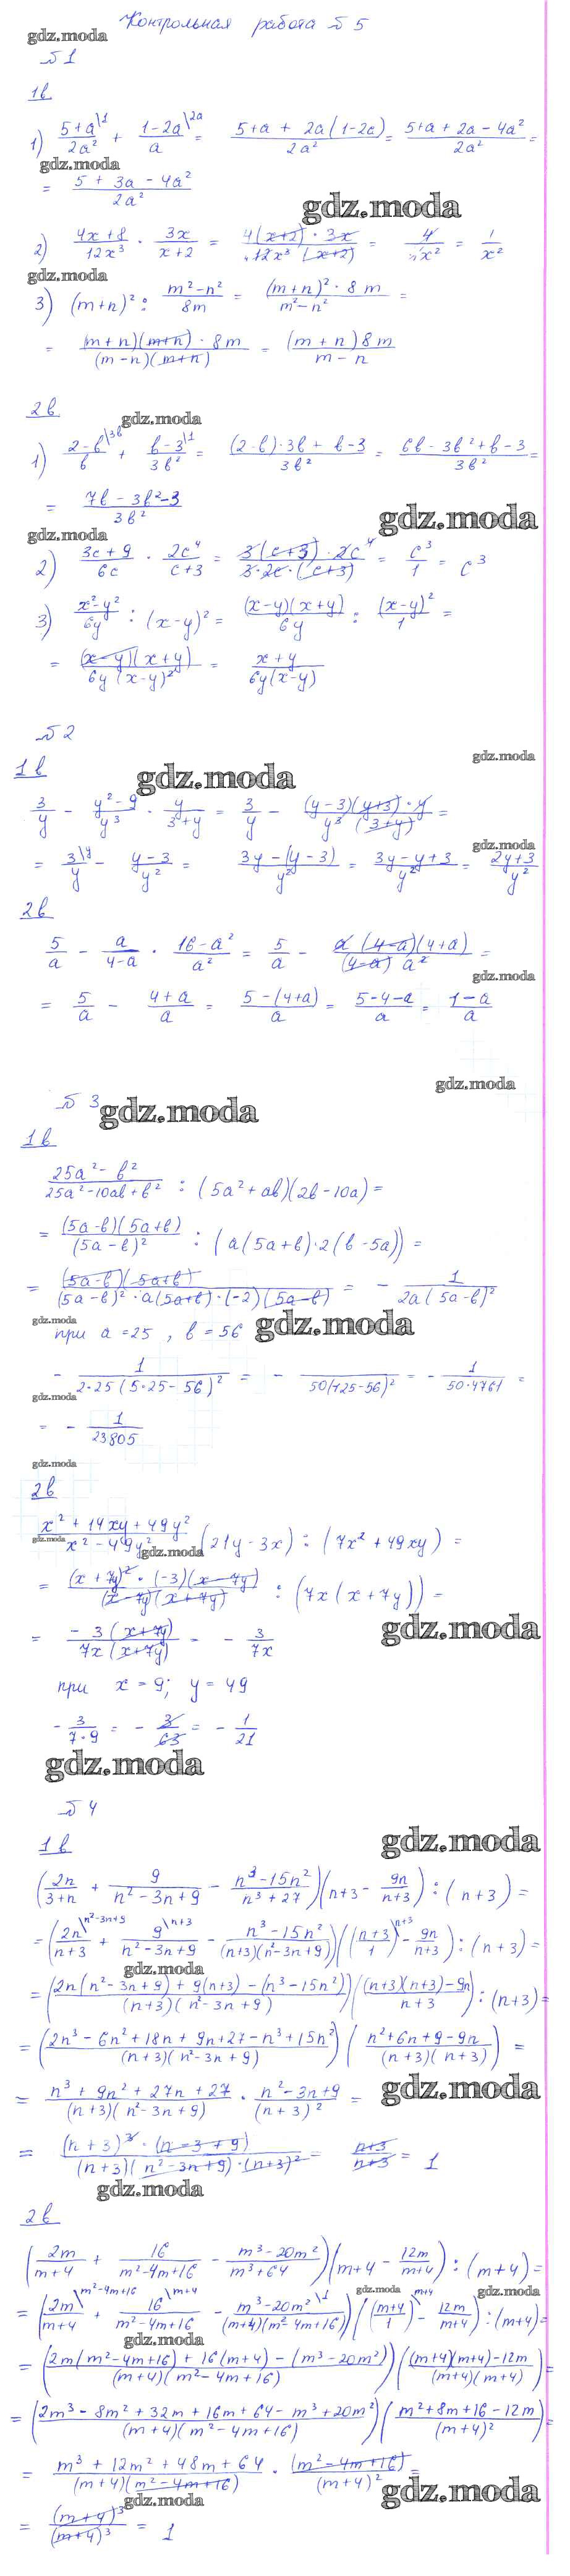 Контрольная работа №5
gdz.moda
№1
1в
1) (5+a\1)/(2a²) + (1-2a\2a)/a = (5+a + 2a(1-2a))/(2a²) = (5+a + 2a - 4a²)/(2a²) =
gdz.moda
= (5 + 3a - 4a²)/(2a²)
gdz.moda
2) (4x+8)/(12x³) · (3x)/(x+2) = (4(x+2) · 3x)/(12x³(x+2)) = 4/(4x²) = 1/x²
gdz.moda
3) (m+n)² : (m²-n²)/(8m) = ((m+n)² · 8m)/(m²-n²) =
= ((m+n)(m+n) · 8m)/((m-n)(m+n)) = ((m+n)8m)/(m-n)
2в
gdz.moda
1) (2-b\3b)/b + (b-3\1)/(3b²) = ((2-b)·3b + b-3)/(3b²) = (6b - 3b² + b - 3)/(3b²) =
= (7b - 3b² - 3)/(3b²)
gdz.moda
gdz.moda
2) (3c+9)/(6c) · (2c⁴)/(c+3) = (3(c+3) · 2c⁴)/(3·2c·(c+3)) = c³/1 = c³
3) (x²-y²)/(6y) : (x-y)² = ((x-y)(x+y))/(6y) : (x-y)²/1 =
= ((x-y)(x+y))/(6y(x-y)²) = (x+y)/(6y(x-y))
№2
gdz.moda
1в
gdz.moda
3/y - (y²-9)/y³ · y/(3+y) = 3/y - ((y-3)(y+3)·y)/(y³(3+y)) =
gdz.moda
= (3\y)/y - (y-3)/y² = (3y-(y-3))/y² = (3y-y+3)/y² = (2y+3)/y²
2в
5/a - a/(4-a) · (16-a²)/a² = 5/a - (a(4-a)(4+a))/((4-a)a²) =
gdz.moda
= 5/a - (4+a)/a = (5-(4+a))/a = (5-4-a)/a = (1-a)/a
gdz.moda
№3
gdz.moda
1в
(25a²-b²)/(25a²-10ab+b²) : (5a²+ab)(2b-10a) =
= ((5a-b)(5a+b))/((5a-b)²) : (a(5a+b)·2(b-5a)) =
= ((5a-b)(5a+b))/((5a-b)²·a(5a+b)·(-2)(5a-b)) = - 1/(2a(5a-b)²)
gdz.moda
при a=25, b=56
gdz.moda
- 1/(2·25(5·25-56)²) = - /(50(125-56)²) = - 1/(50·4761) =
gdz.moda
= - 1/23805
gdz.moda
2в
(x²+14xy+49y²)/(x²-49y²) (21y-3x) : (7x²+49xy) =
gdz.moda
gdz.moda
= ((x+7y)²·(-3)(x-7y))/((x-7y)(x+7y)) : (7x(x+7y)) =
= (-3(x+7y))/(7x(x+7y)) = - 3/(7x)
gdz.moda
при x=9; y=49
- 3/(7·9) = - 3/63 = - 1/21
gdz.moda
№4
1в
gdz.moda
(2n/(3+n) + 9/(n²-3n+9) - (n³-15n²)/(n³+27))(n+3 - 9n/(n+3)) : (n+3) =
= ((2n\n²-3n+9)/(n+3) + (9\n+3)/(n²-3n+9) - (n³-15n²)/((n+3)(n²-3n+9)))((n+3\n+3)/1 - 9n/(n+3)) : (n+3) =
gdz.moda
= ((2n(n²-3n+9) + 9(n+3) - (n³-15n²))/((n+3)(n²-3n+9)))(((n+3)(n+3)-9n)/(n+3)) : (n+3) =
= ((2n³-6n²+18n+9n+27-n³+15n²)/((n+3)(n²-3n+9)))((n²+6n+9-9n)/((n+3)(n+3))) =
= (n³+9n²+27n+27)/((n+3)(n²-3n+9)) · (n²-3n+9)/(n+3)² =
gdz.moda
= ((n+3)³·(n-3+9))/((n+3)(n²-3n+9)·(n+3)²) = (n+3)/(n+3) = 1
gdz.moda
2в
(2m/(m+4) + 16/(m²-4m+16) - (m³-20m²)/(m³+64))(m+4 - 12m/(m+4)) : (m+4) =
gdz.moda
gdz.moda
= ((2m\m²-4m+16)/(m+4) + (16\m+4)/(m²-4m+16) - (m³-20m²\1)/((m+4)(m²-4m+16)))((m+4\m+4)/1 - 12m/(m+4)) : (m+4) =
gdz.moda
= ((2m(m²-4m+16) + 16(m+4) - (m³-20m²))/((m+4)(m²-4m+16)))(((m+4)(m+4)-12m)/((m+4)(m+4))) =
= ((2m³-8m²+32m+16m+64-m³+20m²)/((m+4)(m²-4m+16)))((m²+8m+16-12m)/(m+4)²) =
= (m³+12m²+48m+64)/((m+4)(m²-4m+16)) · (m²-4m+16)/(m+4)² =
gdz.moda
gdz.moda
= (m+4)³/(m+4)³ = 1